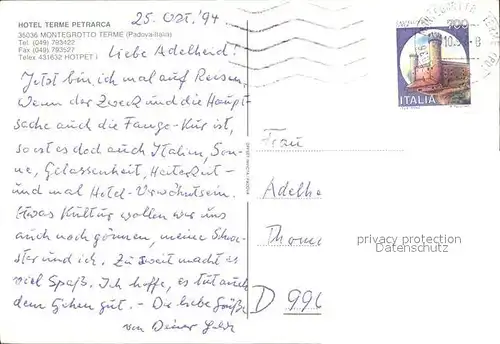 HOTEL TERME PETRARCA
35036 MONTEGROTTO TERME (Padova-Italia)
Tel. (049) 793422
Fax (049) 793527
Telex 431632 HOTPET I
25. Okt. '94
Liebe Adelheid!
Jetzt bin ich mal auf Reisen.
Wenn der Zweck und die Haupt-
sache auch die Fango-Kur ist,
so ist es doch auch Italien, Son-
ne, Gelassenheit, Heiterkeit -
und mal Hotel-Verwöhntsein.
Etwas Kultur wollen wir uns
auch noch gönnen, meine Schwe-
ster und ich. Zu zweit macht es
viel Spaß. Ich hoffe, es tut auch
dem Gehen gut. - Die liebe Grüße
von Deiner
700
ITALIA
Frau
Adelhe
Thoma
D 996
privacy protection